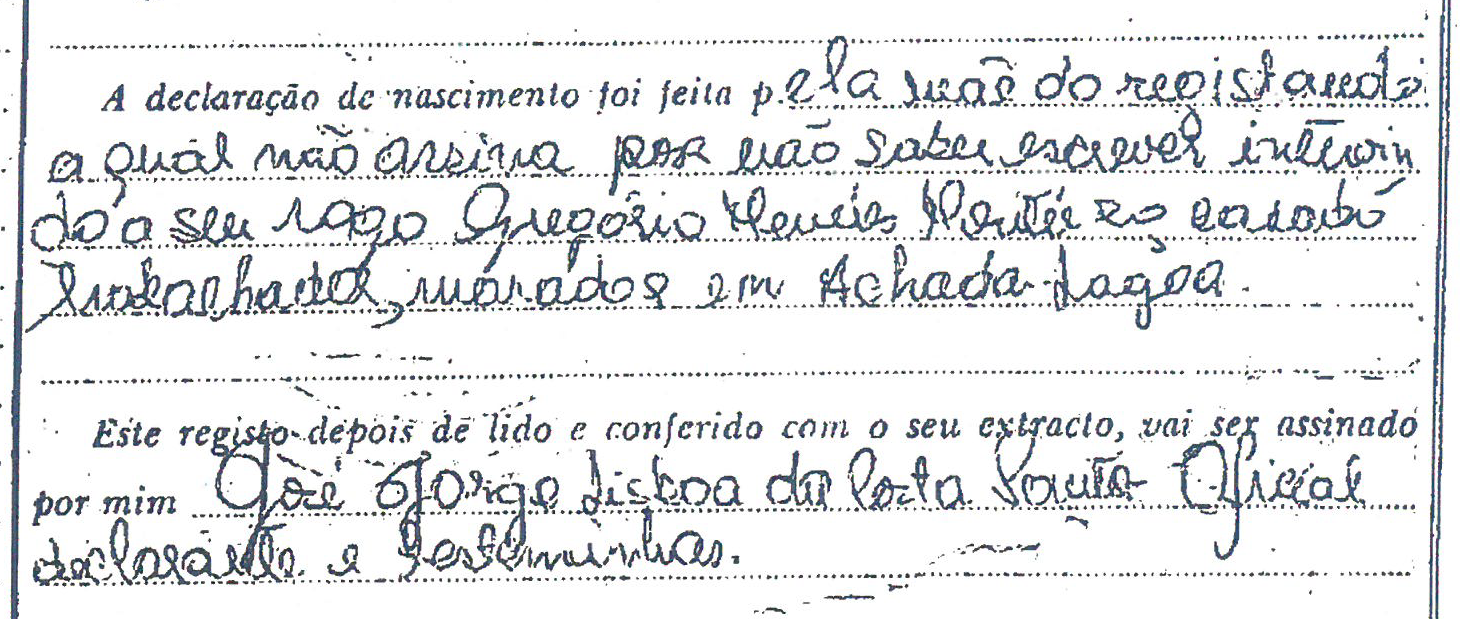 A declaração de nascimento foi feita pela mãe do registando
a qual não assina por não saber escrever intervin
do a seu rogo Gregório
trabalhador, morador em Achada Lagoa.
Este registo depois de lido e conferido com o seu extracto, vai ser assinado
por mim José Jorge Lisboa da Costa Santos Oficial
declarante e testemunhas.